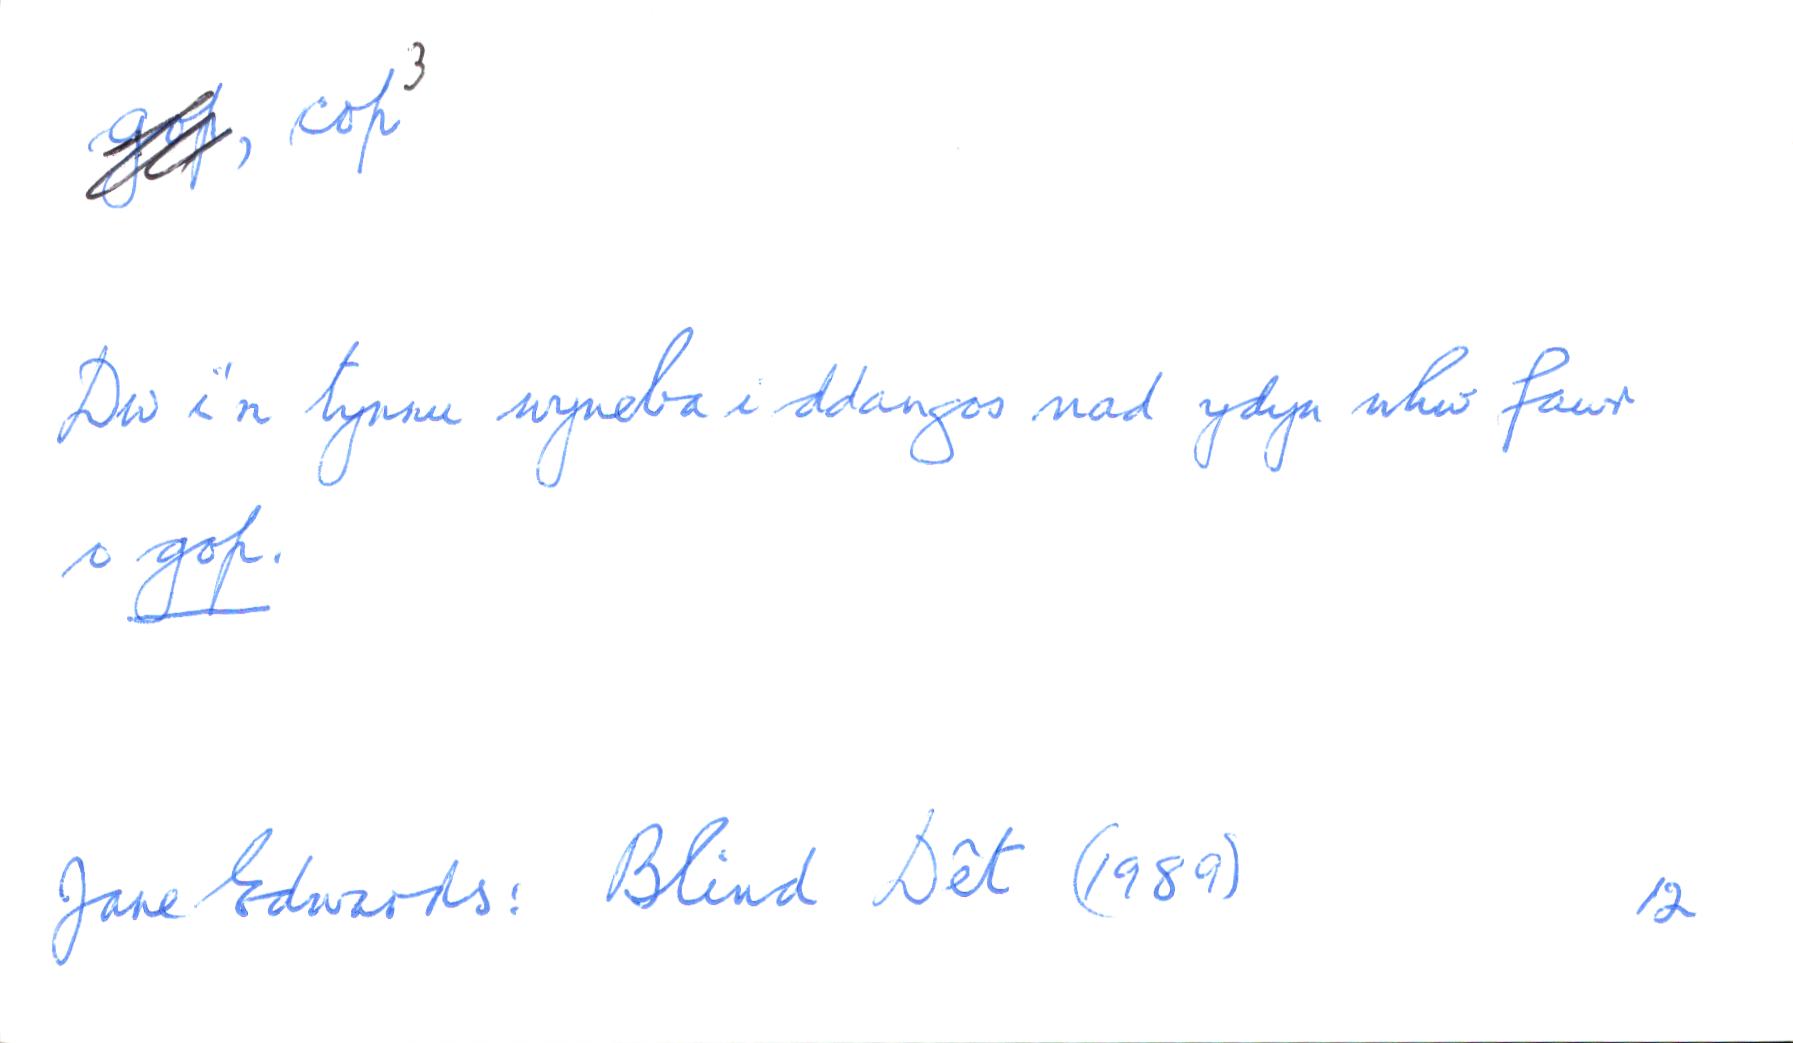 gop, cop³
Dw i'n tynnu wyneba i ddangos nad ydyn nhw fawr
o gop.
Jane Edwards: Blind Dêt (1989) 12